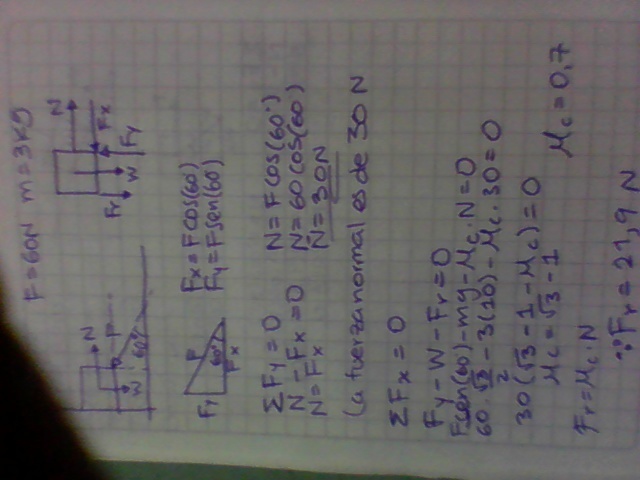 F=60N m=3Kg
N
F
W
60°
N
Fr
W
Fx
Fy
Fy
F
60°
Fx
Fx=Fcos(60°)
Fy=Fsen(60)
ΣFy=0
N-Fx=0
N=Fx
N=Fcos(60°)
N=60cos(60)
N=30N
La fuerza normal es de 30 N
ΣFx=0
Fy-W-Fr=0
Fsen(60)-mg-Mc.N=0
60.√3/2-3(10)-Mc.30=0
30(√3-1-Mc)=0
Mc=√3-1
Mc=0,7
Fr=Mc.N
∵Fr=21,9 N